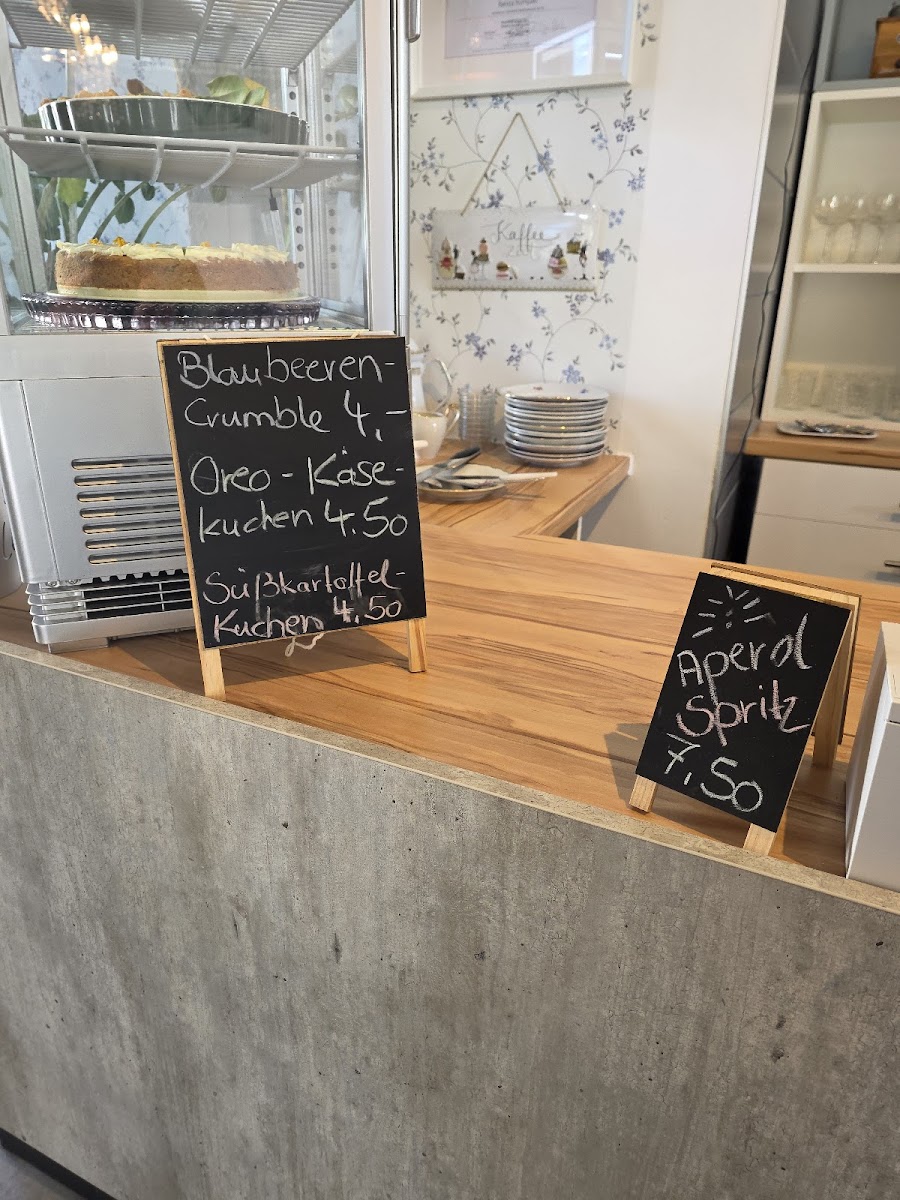 Kaffee
Blaubeeren-
Crumble 4,-
Oreo-Käse-
kuchen 4.50
Süßkartoffel-
Kuchen 4.50
Aperol
Spritz
7,50